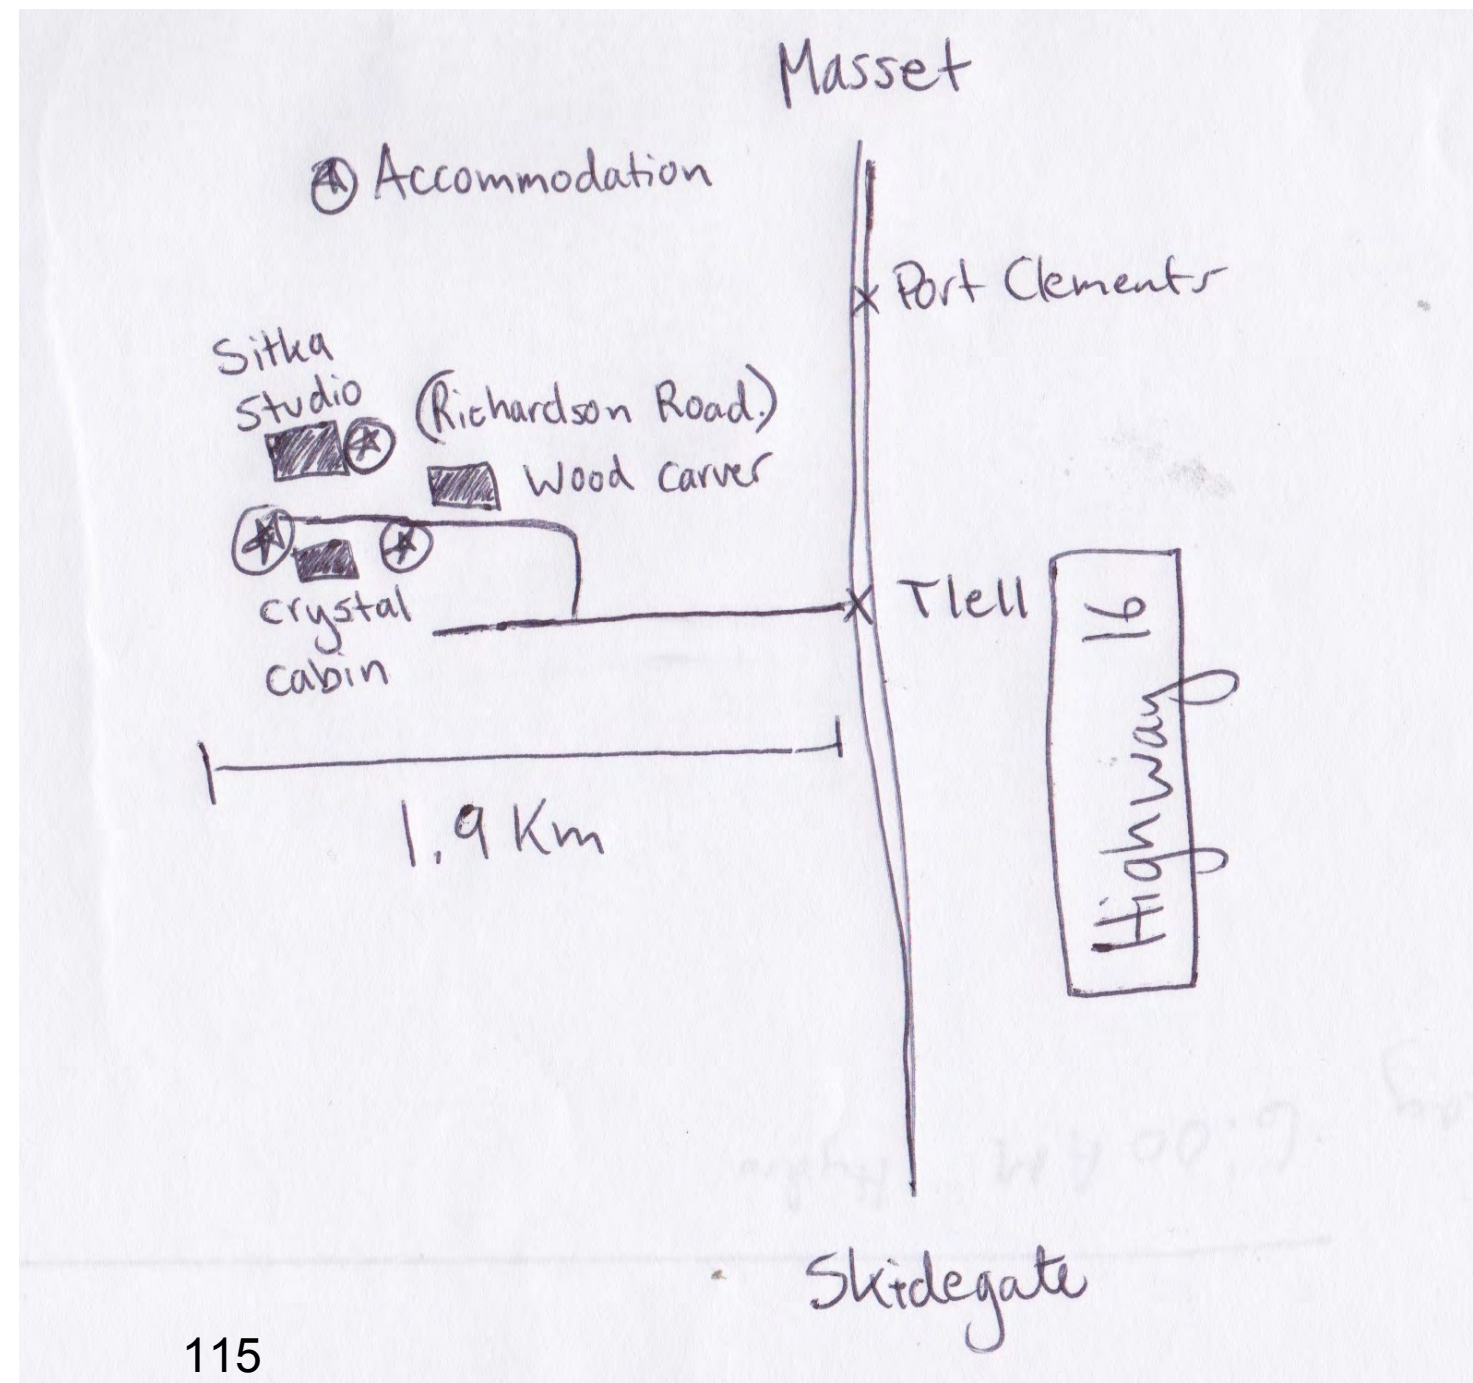 Masset
Accommodation
Port Clements
Sitka
Studio
(Richardson Road.)
Wood Carver
Tlell
crystal
cabin
Highway 16
1.9 Km
6:00 AM
Skidegate
115